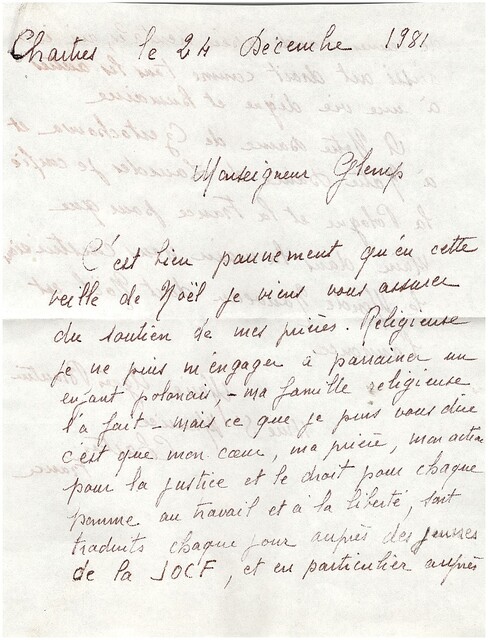 Chartres le 24 Décembre 1981
Monseigneur Glemp
C'est bien pauvrement qu'en cette
veille de Noël je viens vous assurer
du soutien de mes prières. Religieuse
je ne puis m'engager à parrainer un
enfant polonais, - ma famille religieuse
l'a fait - mais ce que je puis vous dire
c'est que mon cœur, ma prière, mon action
pour la justice et le droit pour chaque
homme au travail et à la liberté, sont
traduits chaque jour auprès des jeunes
de la JOCF, et en particulier auprès